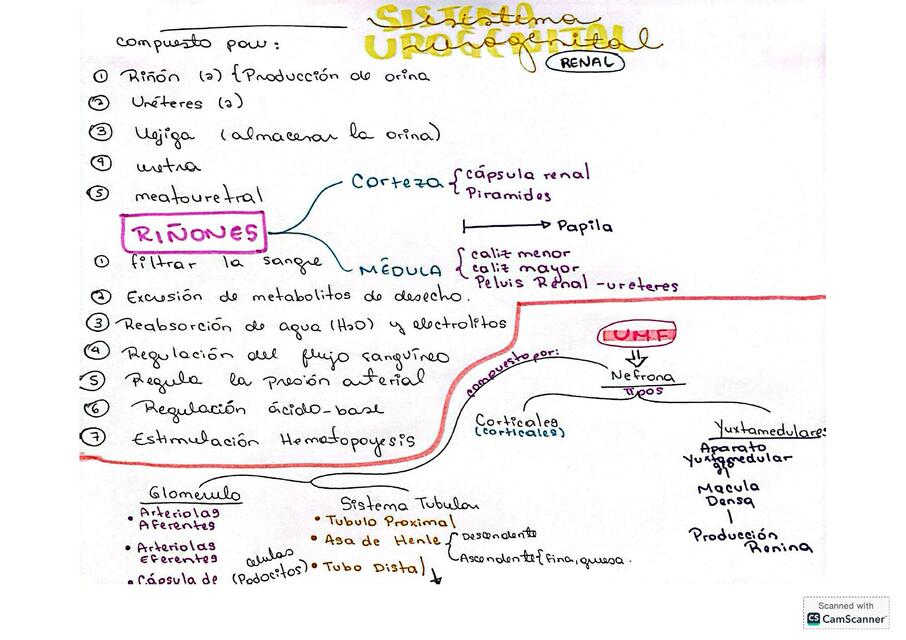 SISTEMA UROGENITAL
sistema
urogenital
RENAL
compuesto por:
① Riñón (2) {Producción de orina
② Uréteres (2)
③ Vejiga (almacenar la orina)
④ uretra
⑤ meatouretral
RIÑONES
Corteza { cápsula renal
Piramides
Papila
MÉDULA { caliz menor
caliz mayor
Pelvis Renal - ureteres
① filtrar la sangre
② Excresión de metabolitos de desecho.
③ Reabsorción de agua (H2O) y electrolitos
④ Regulación del flujo sanguíneo
⑤ Regula la presión arterial
⑥ Regulación ácido-base
⑦ Estimulación Hematopoyesis
UMF
Nefrona
tipos
compuesto por:
Corticales
(corticales)
Yuxtamedulares
Aparato
Yuxtamedular
Macula
Densa
Producción
Renina
Glomerulo
• Arteriolas
Aferentes
• Arteriolas
Eferentes
• Cápsula de
celulas
(Podocitos)
Sistema Tubular
• Tubulo Proximal
• Asa de Henle { Descendente
Ascendente { fina, gruesa.
• Tubo Distal
Scanned with
CS CamScanner